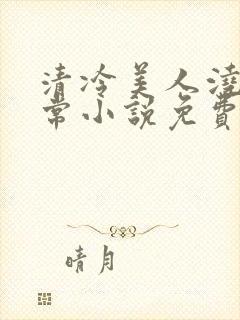 清冷美人澆
常小說免費
晴月